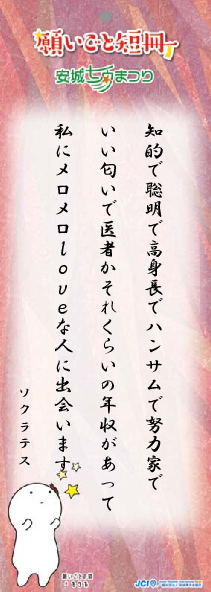 願いごと短冊
安城七夕まつり
知的で聡明で高身長でハンサムで努力家で
いい匂いで医者かそれくらいの年収があって
私にメロメロloveな人に出会います
ソクラテス
願いごと短冊
JCI